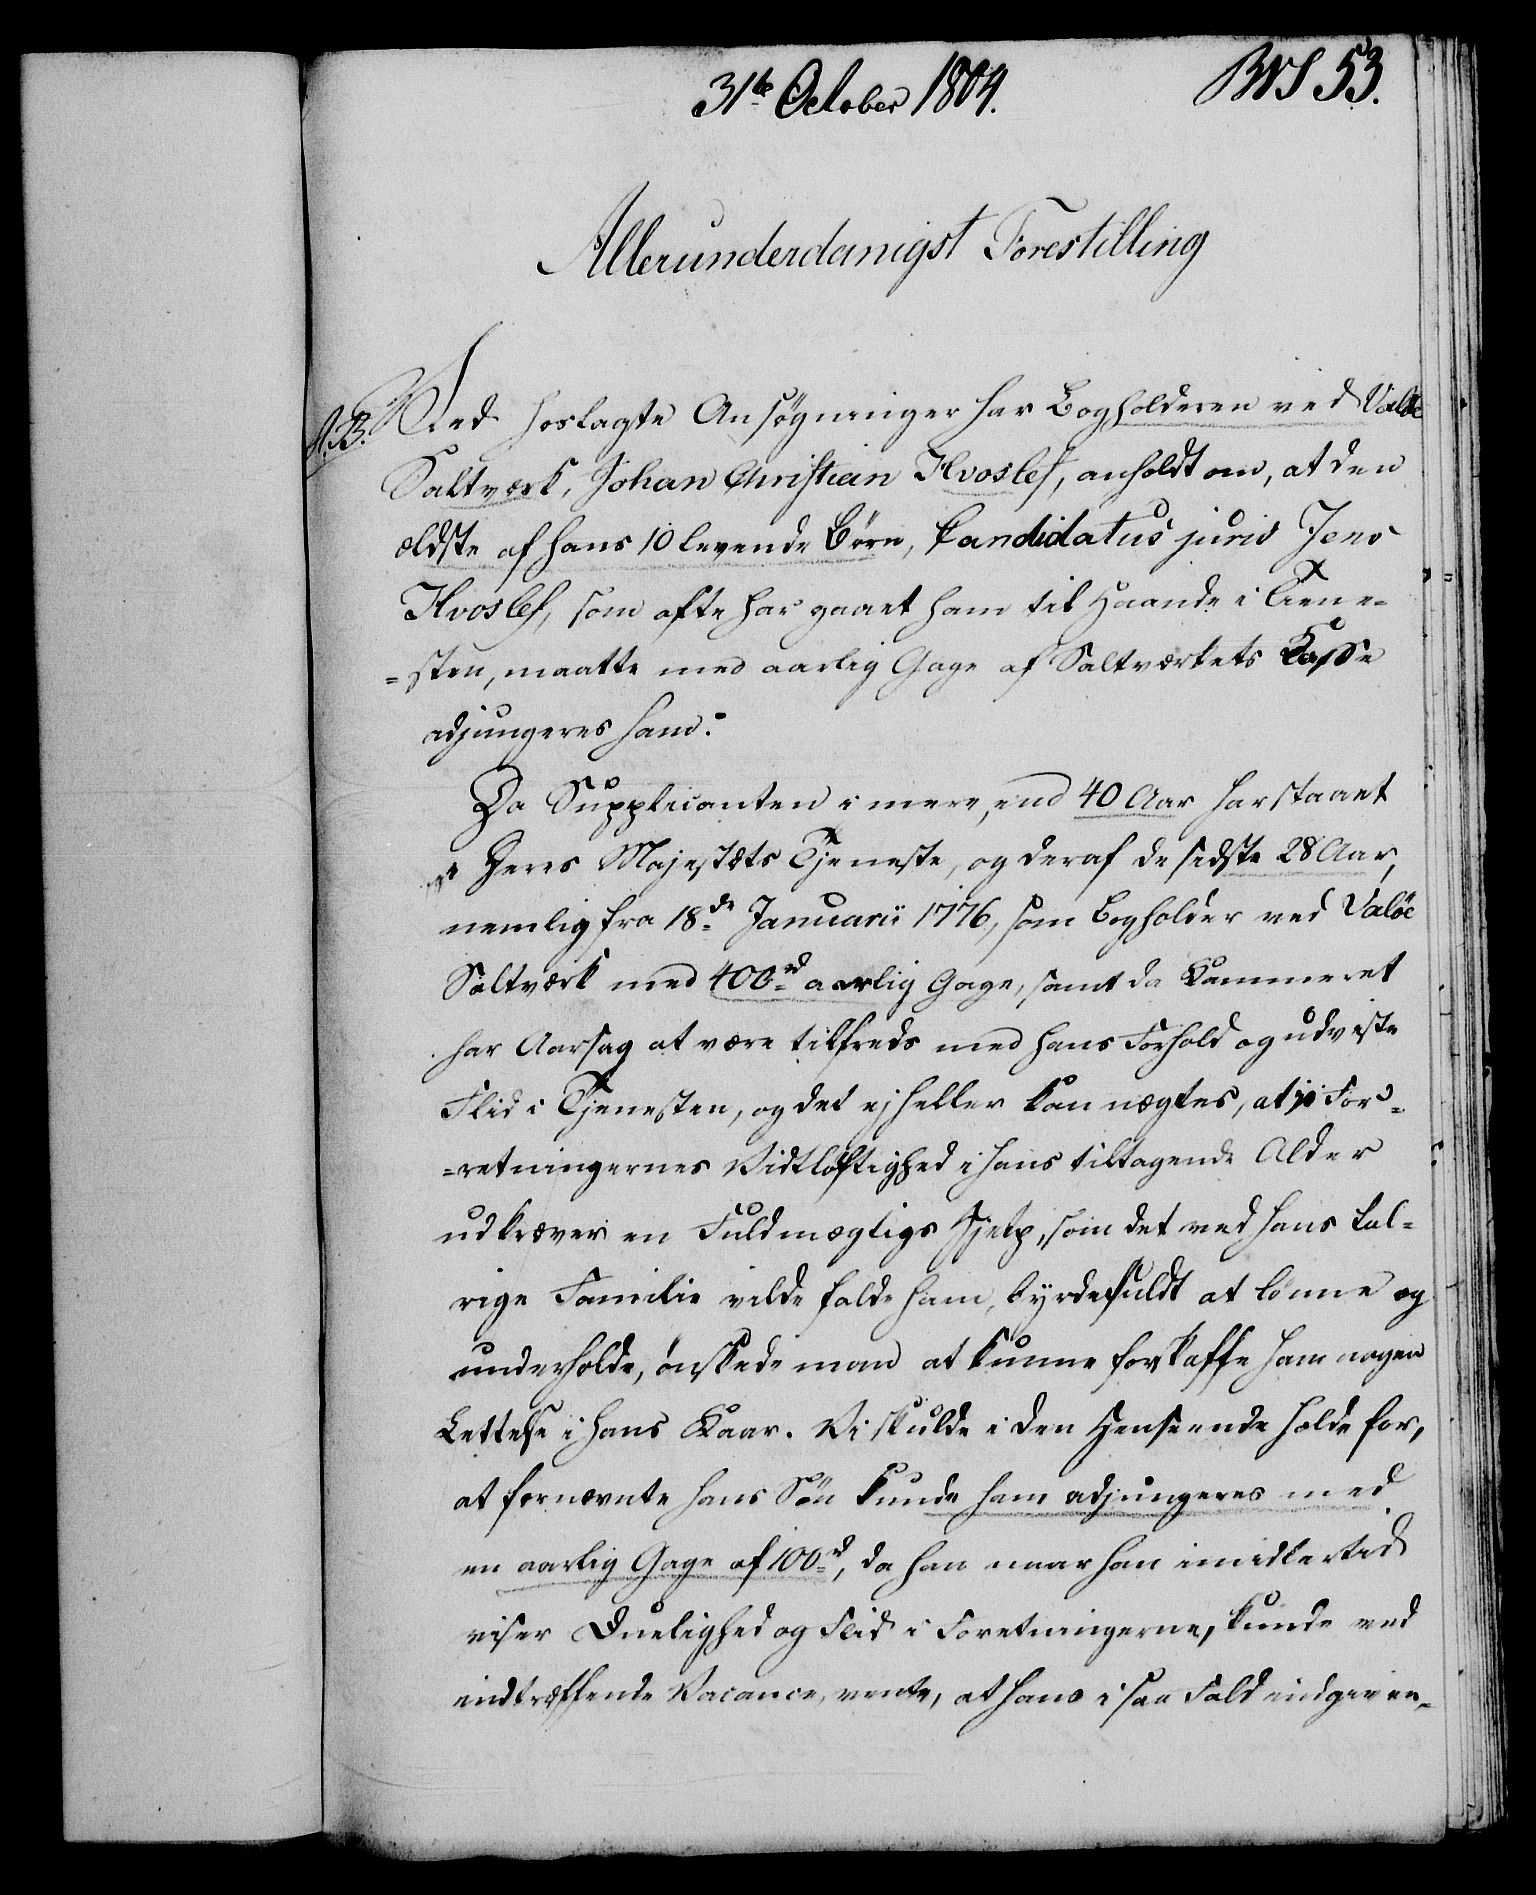 31te October 1804.
53.
Allerunderdanigst Forestilling
A. B.
Ved hoslagte Ansøgninger har Bogholderen ved Valöe
Saltværk, Johan Christian Hvoslef, anholdt om, at den
ældste af hans 10 levende Børn, Candidatus juris Jens
Hvoslef, som ofte har gaaet ham til Haande i Tiene-
=sten, maatte med aarlig Gage af Saltværkets Kasse
adjungeres ham.
Da Supplicanten i mere, end 40 Aar har staaet
i Deres Majestæts Tjeneste, og deraf de sidste 28 Aar,
nemlig fra 18de Januarii 1776, som Bogholder ved Valöe
Saltværk med 400rd aarlig Gage, samt da Kammeret
har Aarsag at være tilfreds med hans Forhold og udviste
Flid i Tjenesten, og det ej heller kan nægtes, at jo For-
=retningernes Vidtløftighed i hans tiltagende Alder
udkræver en Fuldmægtigs Hjelp, som det ved hans tal-
rige Familie vilde falde ham byrdefuldt at lønne og
underholde, ønskede man at kunne forskaffe ham nogen
Lettelse i hans Kaar. Vi skulde i den Henseende holde for,
at fornævnte hans Søn kunde ham adjungeres med
en aarlig Gage af 100rd, da han naar han imidlertid
viser Duelighed og Flid i Foretningerne, kunde ved
indtræffende Vacance, vente, at hans i saa Fald indgiven-